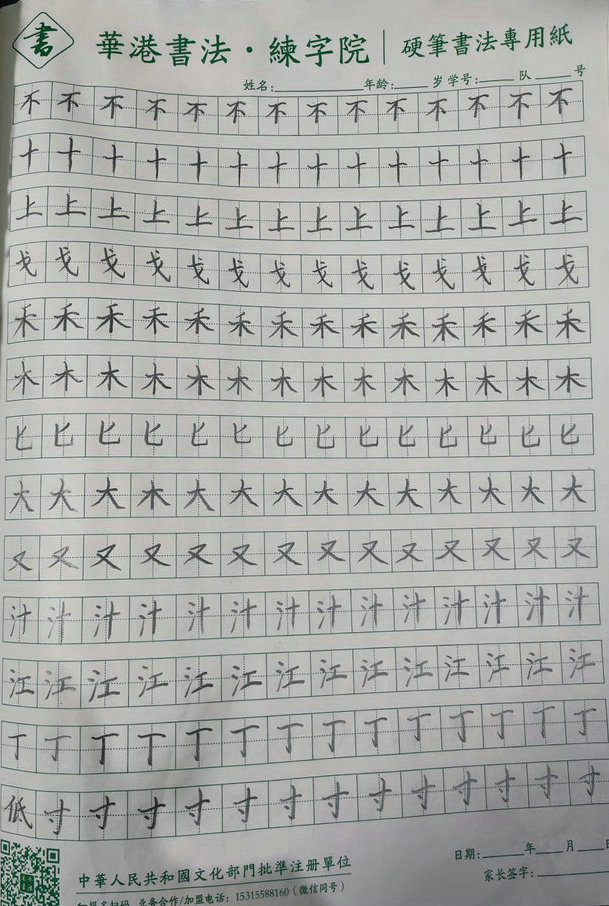 書 華港書法·練字院 硬筆書法專用紙
姓名: 年龄: 岁 学号: 队 号
不不不不不不不不不不不不不不
十十十十十十十十十十十十十十
上上上上上上上上上上上上上上
戈戈戈戈戈戈戈戈戈戈戈戈戈戈
禾禾禾禾禾禾禾禾禾禾禾禾禾禾
木木木木木木木木木木木木木木
匕匕匕匕匕匕匕匕匕匕匕匕匕匕
大大大木大大大大大大大大大大
又又又又又又又又又又又又又又
汁汁汁汁汁汁汁汁汁汁汁汁汁汁
江江江江江江江江江江江江江江
丁丁丁丁丁丁丁丁丁丁丁丁丁丁
低寸寸寸寸寸寸寸寸寸寸寸寸寸
中華人民共和國文化部門批準注册單位
业务合作/加盟电话: 15315588160 (微信同号)
日期: 年 月 日
家长签字: